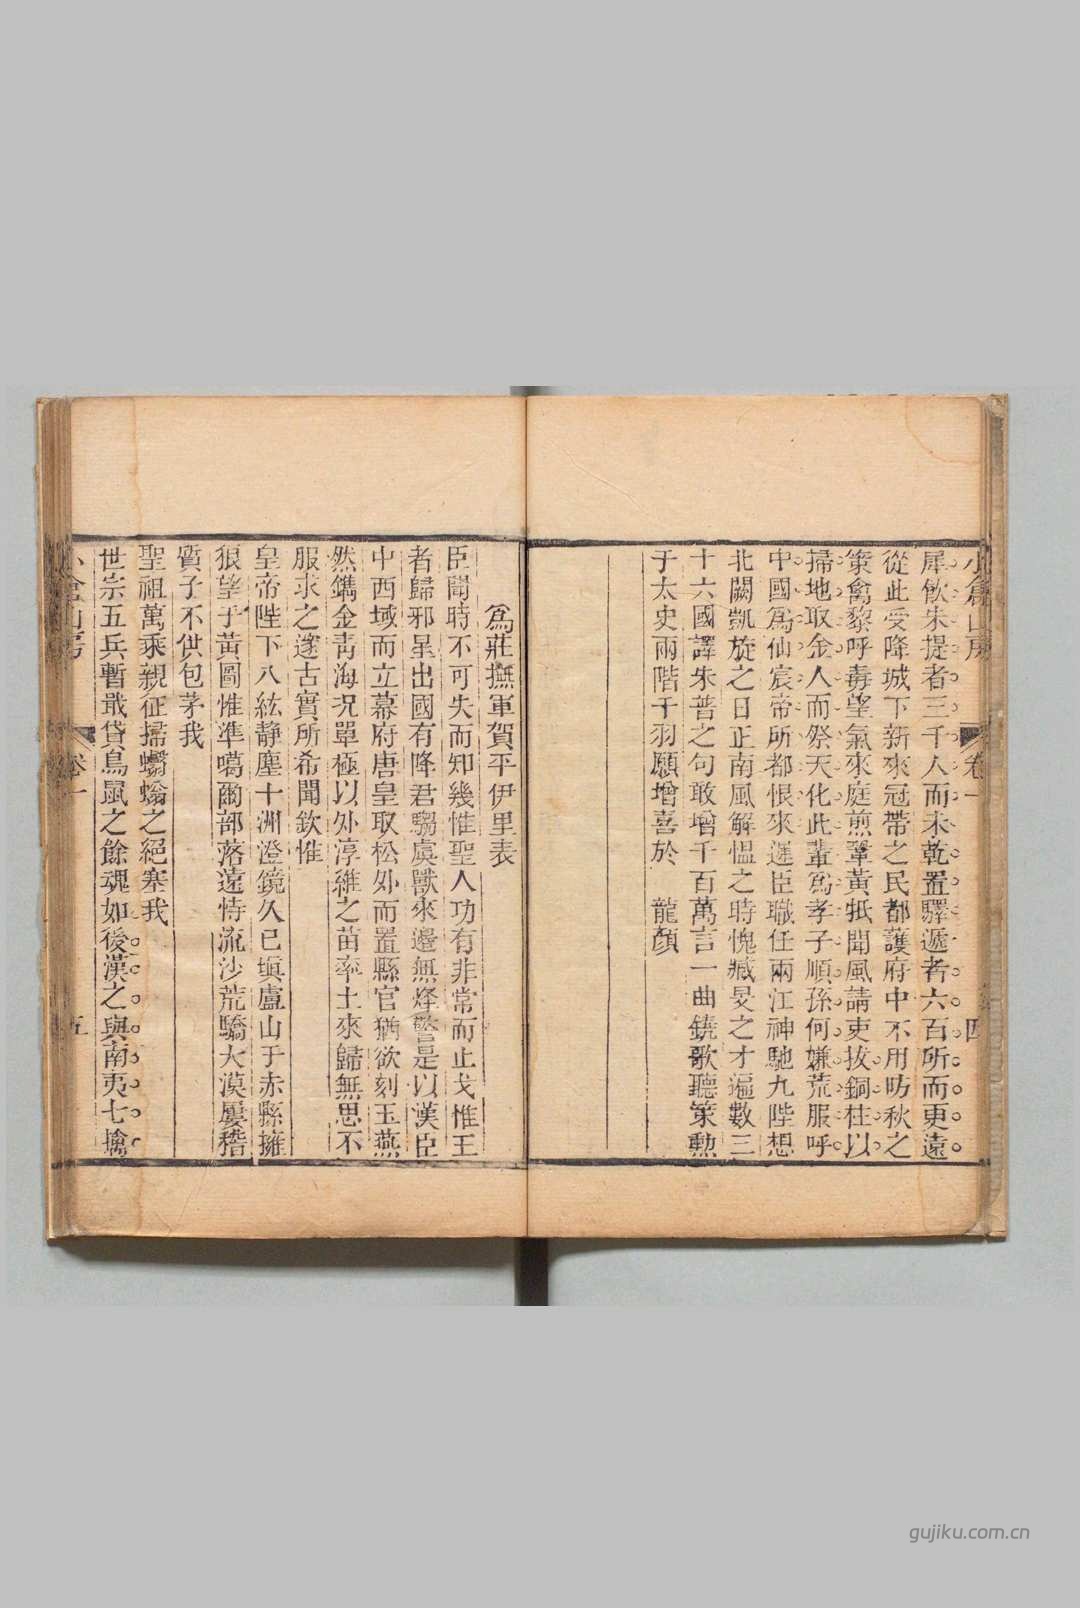 犀飮朱提者三千人而未乾置驛遞者六百所而更遠
從此受降城下新來冠帶之民都護府中不用昉秋之
策禽黎呼毒望氣來庭煎鞏黃羝聞風請吏拔銅柱以
掃地取金人而祭天化此輩爲孝子順孫何嫌荒服呼
中國爲仙宸帝所都恨來遲臣職任兩江神馳九陛想
北闕凱旋之日正南風解慍之時愧臧旻之才遍數三
十六國譯朱普之句敢增千百萬言一曲鐃歌聽策勳
于太史兩階干羽願增喜於 龍顏
小倉山房
卷一
四
爲莊撫軍賀平伊里表
臣聞時不可失而知幾惟聖人功有非常而止戈惟王
者歸邪星出國有降君騶虞獸來邊無烽警是以漢臣
中西域而立幕府唐皇取松外而置縣官猶欲刻玉燕
然鐫金青海况單極以外淳維之苗率土來歸無思不
服求之邃古實所希聞欽惟
皇帝陛下八紘静塵十洲澄鏡久已塡盧山于赤縣擁
狼望于黃圖惟準噶爾部落遠恃流沙荒驕大漠屢稽
質子不供包茅我
聖祖萬乘親征掃蠮螉之絕塞我
世宗五兵暫戢貸鳥鼠之餘魂如後漢之與南夷七擒
小倉山房
卷一
五
gujiku.com.cn